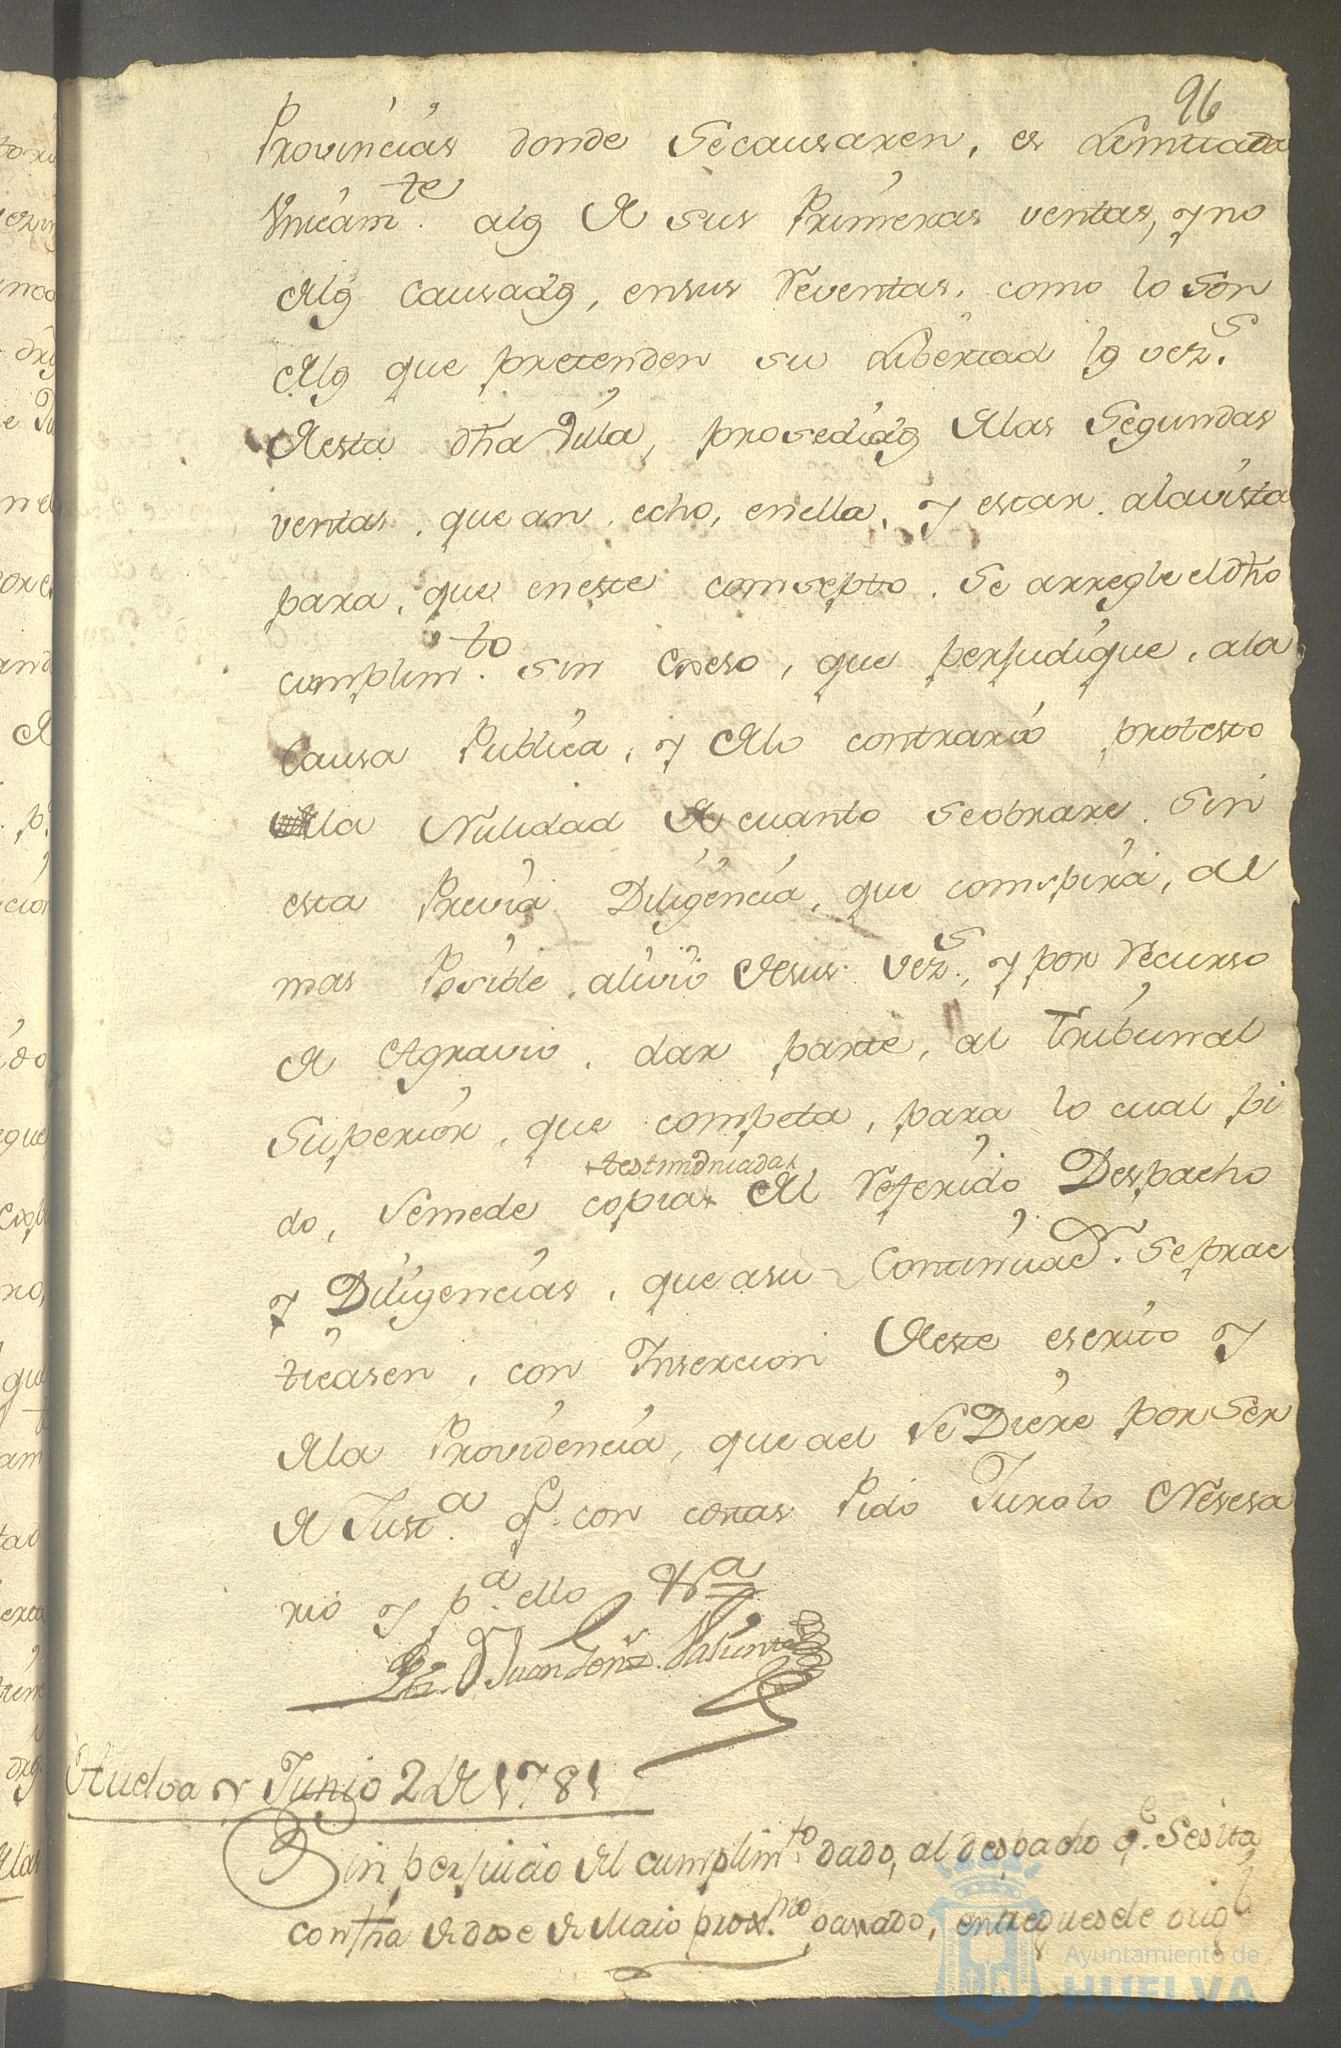 96
Provincias donde Secausaren, es Lemitada
Vnicamte. alos de sus Primeras ventas, y no
delos Causados, ensus Reventas, como lo son
delos que pretenden su Libertad los vezs.
desta dha Villa, prosedidos delas Segundas
ventas, que an echo, enella, y estan alavista
para, que eneste comsepto, Se arregle eldho
cumplimto. sin exeso, que perjudique, ala
Causa Publica, y delo contrario protesto
la Nulidad de cuanto seobrare sin
esta Previa Diligencia, que comspira, al
mas Posible alivio desus vezs., y por Recurso
de Agravio dar parte, al Tribunal
Superior, que competa, para lo cual pi
testimoniadas
do, Semede copias del Referido Despacho
y Diligencias, que asu Continuacn. Seprac
ticasen, con Insercion deste escrito y
dela Providencia, que ael Se Diere por Ser
de Justa. q. con costas Pido Juro lo Nesesa
rio y pa. ello &a
Juan
Huelva y Junio 2 de 1781
Sin perjuicio del cumplimto. dado, al despacho qe. Sesita
con fha de doze de Maio proxmo. passado, entreguesele orig
Ayuntamiento de
HUELVA